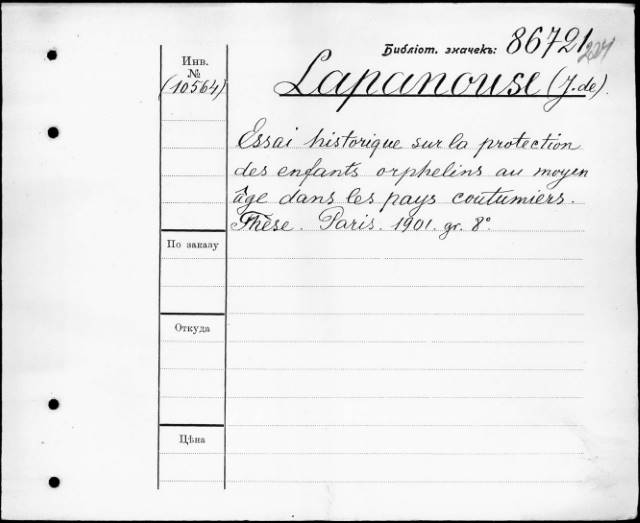 Библіот. значекъ: 86721
Инв.
№
(10564)
Lapanouse (J. de).
Essai historique sur la protection
des enfants orphelins au moyen
âge dans les pays coutumiers.
Thèse. Paris. 1901. gr. 8°
По заказу
Откуда
Цѣна